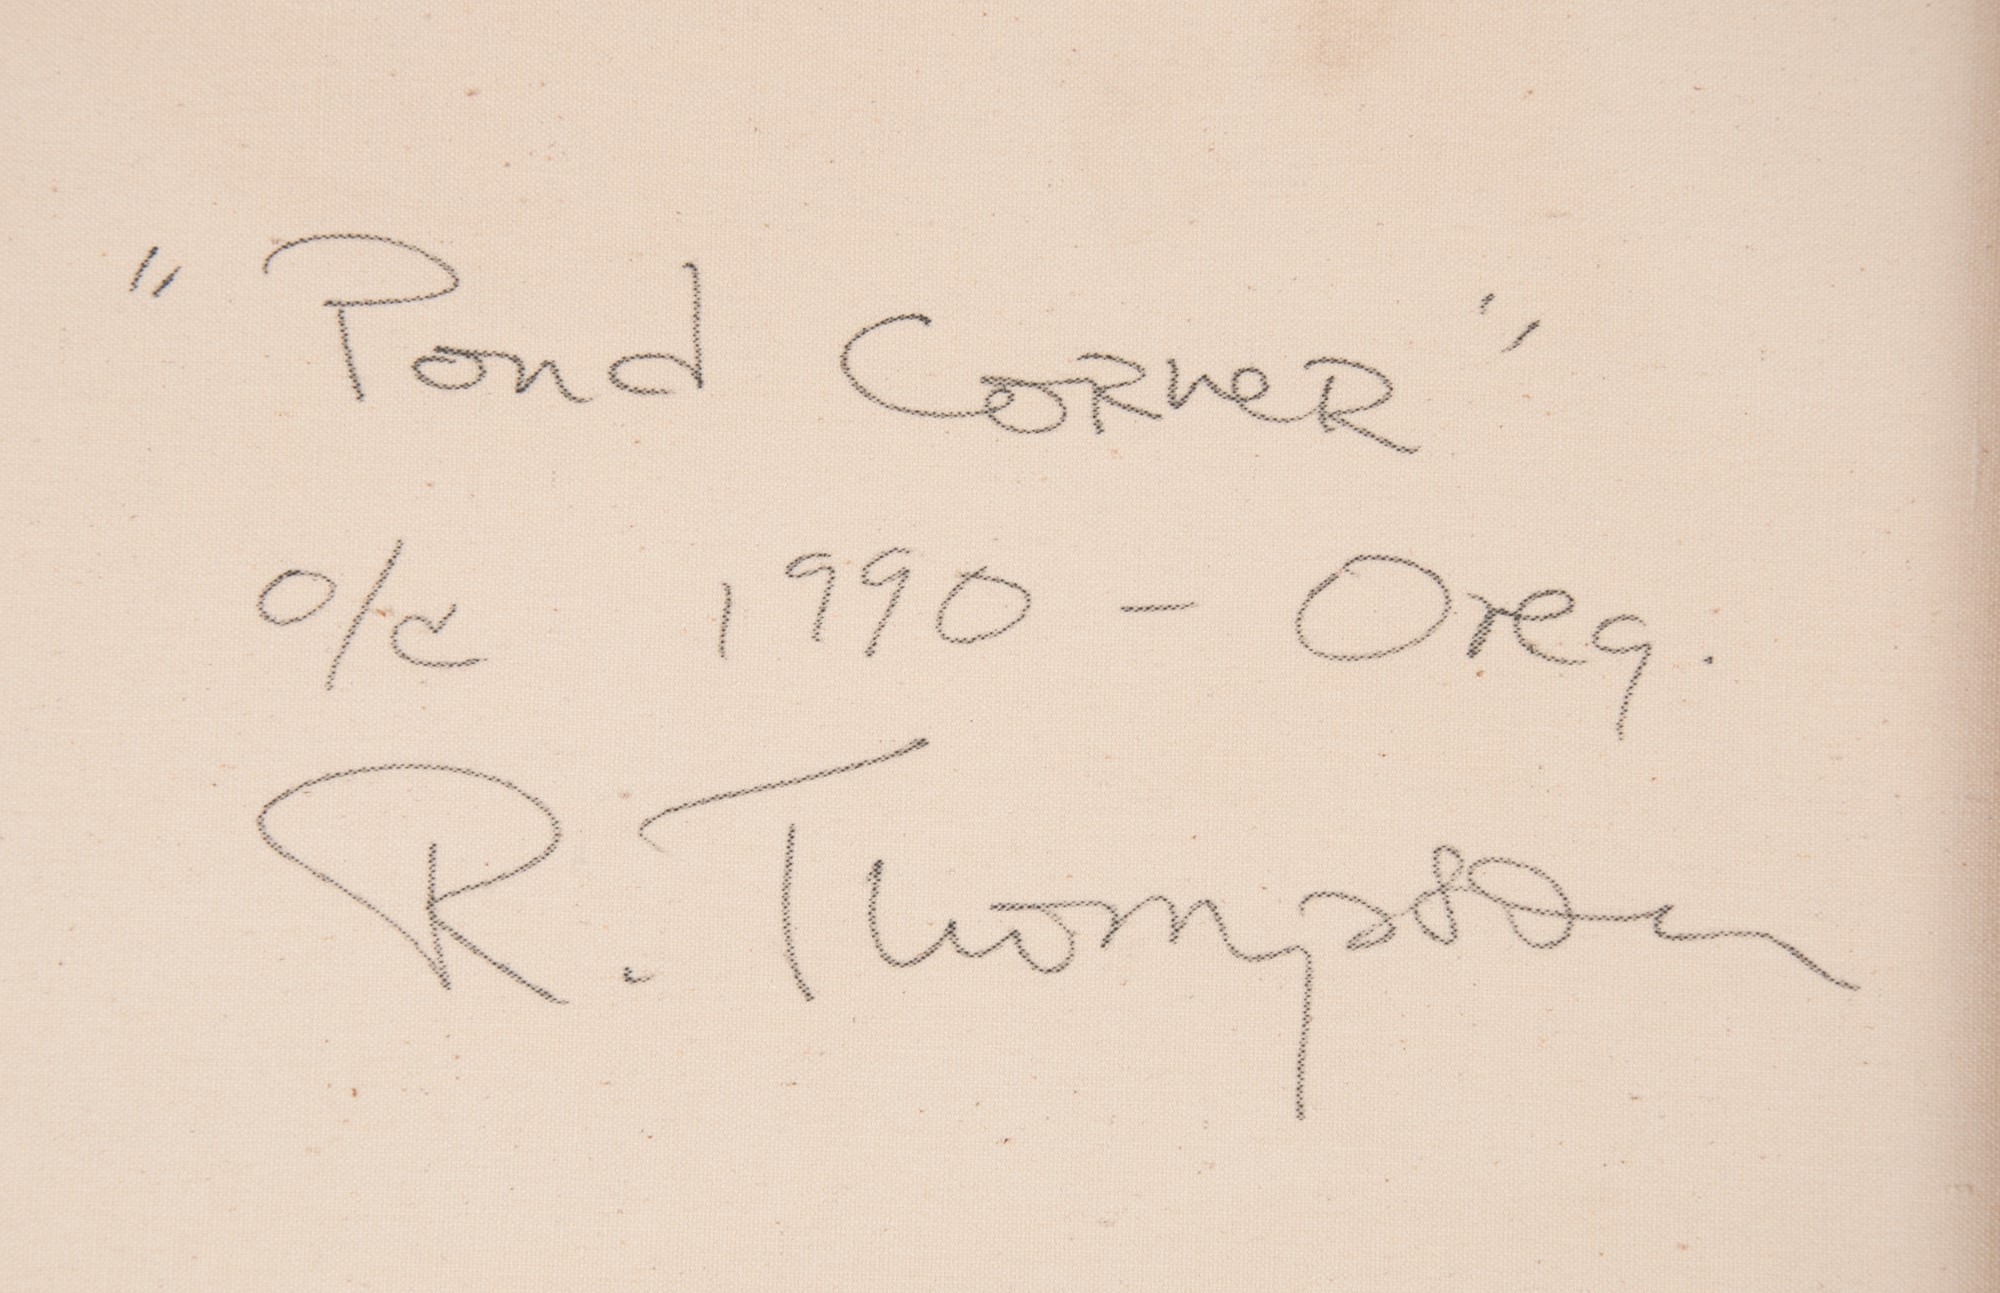 "Pond Corner"
o/c 1990 - Oreg.
R. Thompson